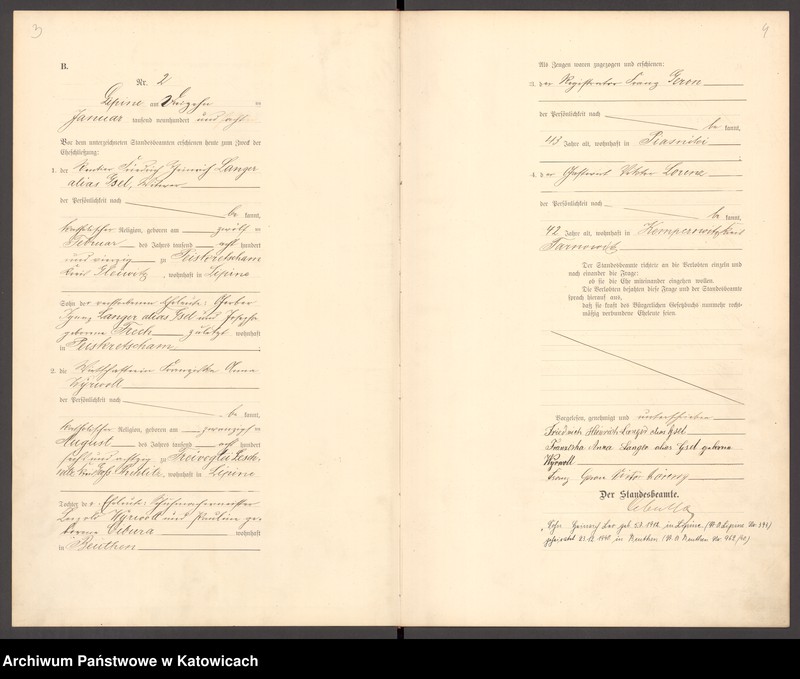 3
B.
Nr. 2
Lipine am Vierzehn ten
Januar tausend neunhundert und acht
Vor dem unterzeichneten Standesbeamten erschienen heute zum Zweck der
Eheschließung:
1. der Rentner Friedrich Heinrich Langer
alias Gsel, Witwer
der Persönlichkeit nach
be kannt,
katholischer Religion, geboren am zwölf ten
Februar des Jahres tausend acht hundert
und vierzig zu Peiskretscham
Kreis Gleiwitz, wohnhaft in Lipine
Sohn der verstorbenen Eheleute: Gerber
Ignaz Langer alias Gsel und Josepha
geborene zuletzt wohnhaft
in Peiskretscham
2. die Wirthschafterin Franziska Anna
Wyrwoll
der Persönlichkeit nach
be kannt,
katholischer Religion, geboren am zwanzigsten
August des Jahres tausend acht hundert
sechs und achtzig zu
wohnhaft in Lipine
Tochter der Eheleute: Schuhmachermeister
Leopold Wyrwoll und Pauline ge-
borene Cibura wohnhaft
in Beuthen
4
Als Zeugen waren zugezogen und erschienen:
3. der Registrator Franz Geron
der Persönlichkeit nach
be kannt,
43 Jahre alt, wohnhaft in Piasniki
4. der Gastwirt Viktor Lorenz
der Persönlichkeit nach
be kannt,
42 Jahre alt, wohnhaft in Kempczowitz Kreis
Tarnowitz
Der Standesbeamte richtete an die Verlobten einzeln und
nach einander die Frage:
ob sie die Ehe miteinander eingehen wollen.
Die Verlobten bejahten diese Frage und der Standesbeamte
sprach hierauf aus,
daß sie kraft des Bürgerlichen Gesetzbuchs nunmehr recht-
mäßig verbundene Eheleute seien.
Vorgelesen, genehmigt und unterschrieben
Friedrich Heinrich Langer alias Gsel
Franziska Anna Langer alias Gsel geborene
Wyrwoll
Franz Geron Viktor Lorenz
Der Standesbeamte.
Cibulla
Sohn Heinrich geb. in Lipine
geheiratet in Beuthen
Archiwum Państwowe w Katowicach